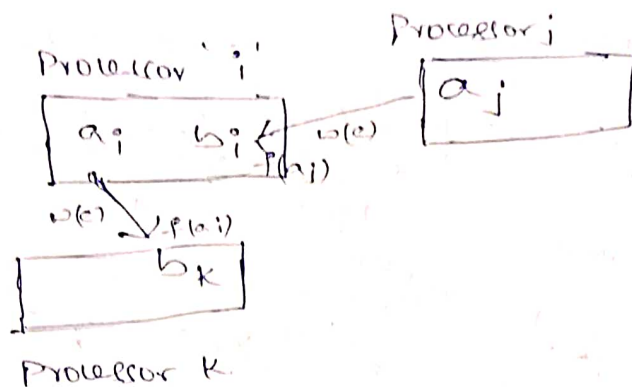 Processor j
Processor 'i'
a j
a i b i w(e)
f(a j)
w(e) f(a i)
b k
Processor K